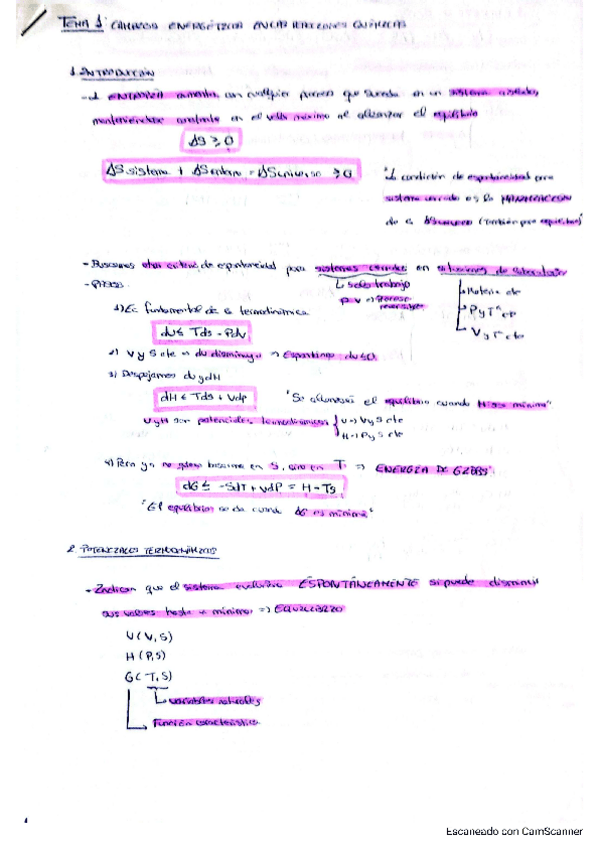 TEMA 1: CAMBIOS ENERGÉTICOS EN LAS REACCIONES QUÍMICAS
1. INTRODUCCIÓN
- La ENTROPÍA aumenta con cualquier proceso que suceda en un sistema aislado,
manteniéndose constante en el valor máximo al alcanzar el equilibrio
ΔS ≥ 0
ΔSsistema + ΔSentorno = ΔSuniverso ≥ 0
"La condición de espontaneidad para
sistema cerrado es la
de la (También para equilibrio)"
- Buscamos otro criterio de espontaneidad para sistemas cerrados en situaciones de laboratorio
- PASOS
↳ solo trabajo
p v → proceso reversible
Materia cte
P y T cte
V y T cte
1) Ec fundamental de la termodinámica
dU ≤ Tds - Pdv
2) V y S cte → du disminuye → Espontáneo du≤0
3) Despejamos du y dH
dH ≤ Tds + Vdp
"Se alcanzará el equilibrio cuando H sea mínima"
U y H son potenciales termodinámicos
U → V y S cte
H → P y S cte
4) Pero ya no quiero basarme en S, sino en T ⇒ ENERGÍA DE GIBBS
dG ≤ -SdT + VdP = H - TS
"El equilibrio se da cuando ΔG es mínima"
2. POTENCIALES TERMODINÁMICOS
- Indican que el sistema evoluciona ESPONTÁNEAMENTE si puede disminuir
sus valores hasta un mínimo ⇒ EQUILIBRIO
U(V,S)
H(P,S)
G(T,S)
↳ variables naturales
Función característica
Escaneado con CamScanner